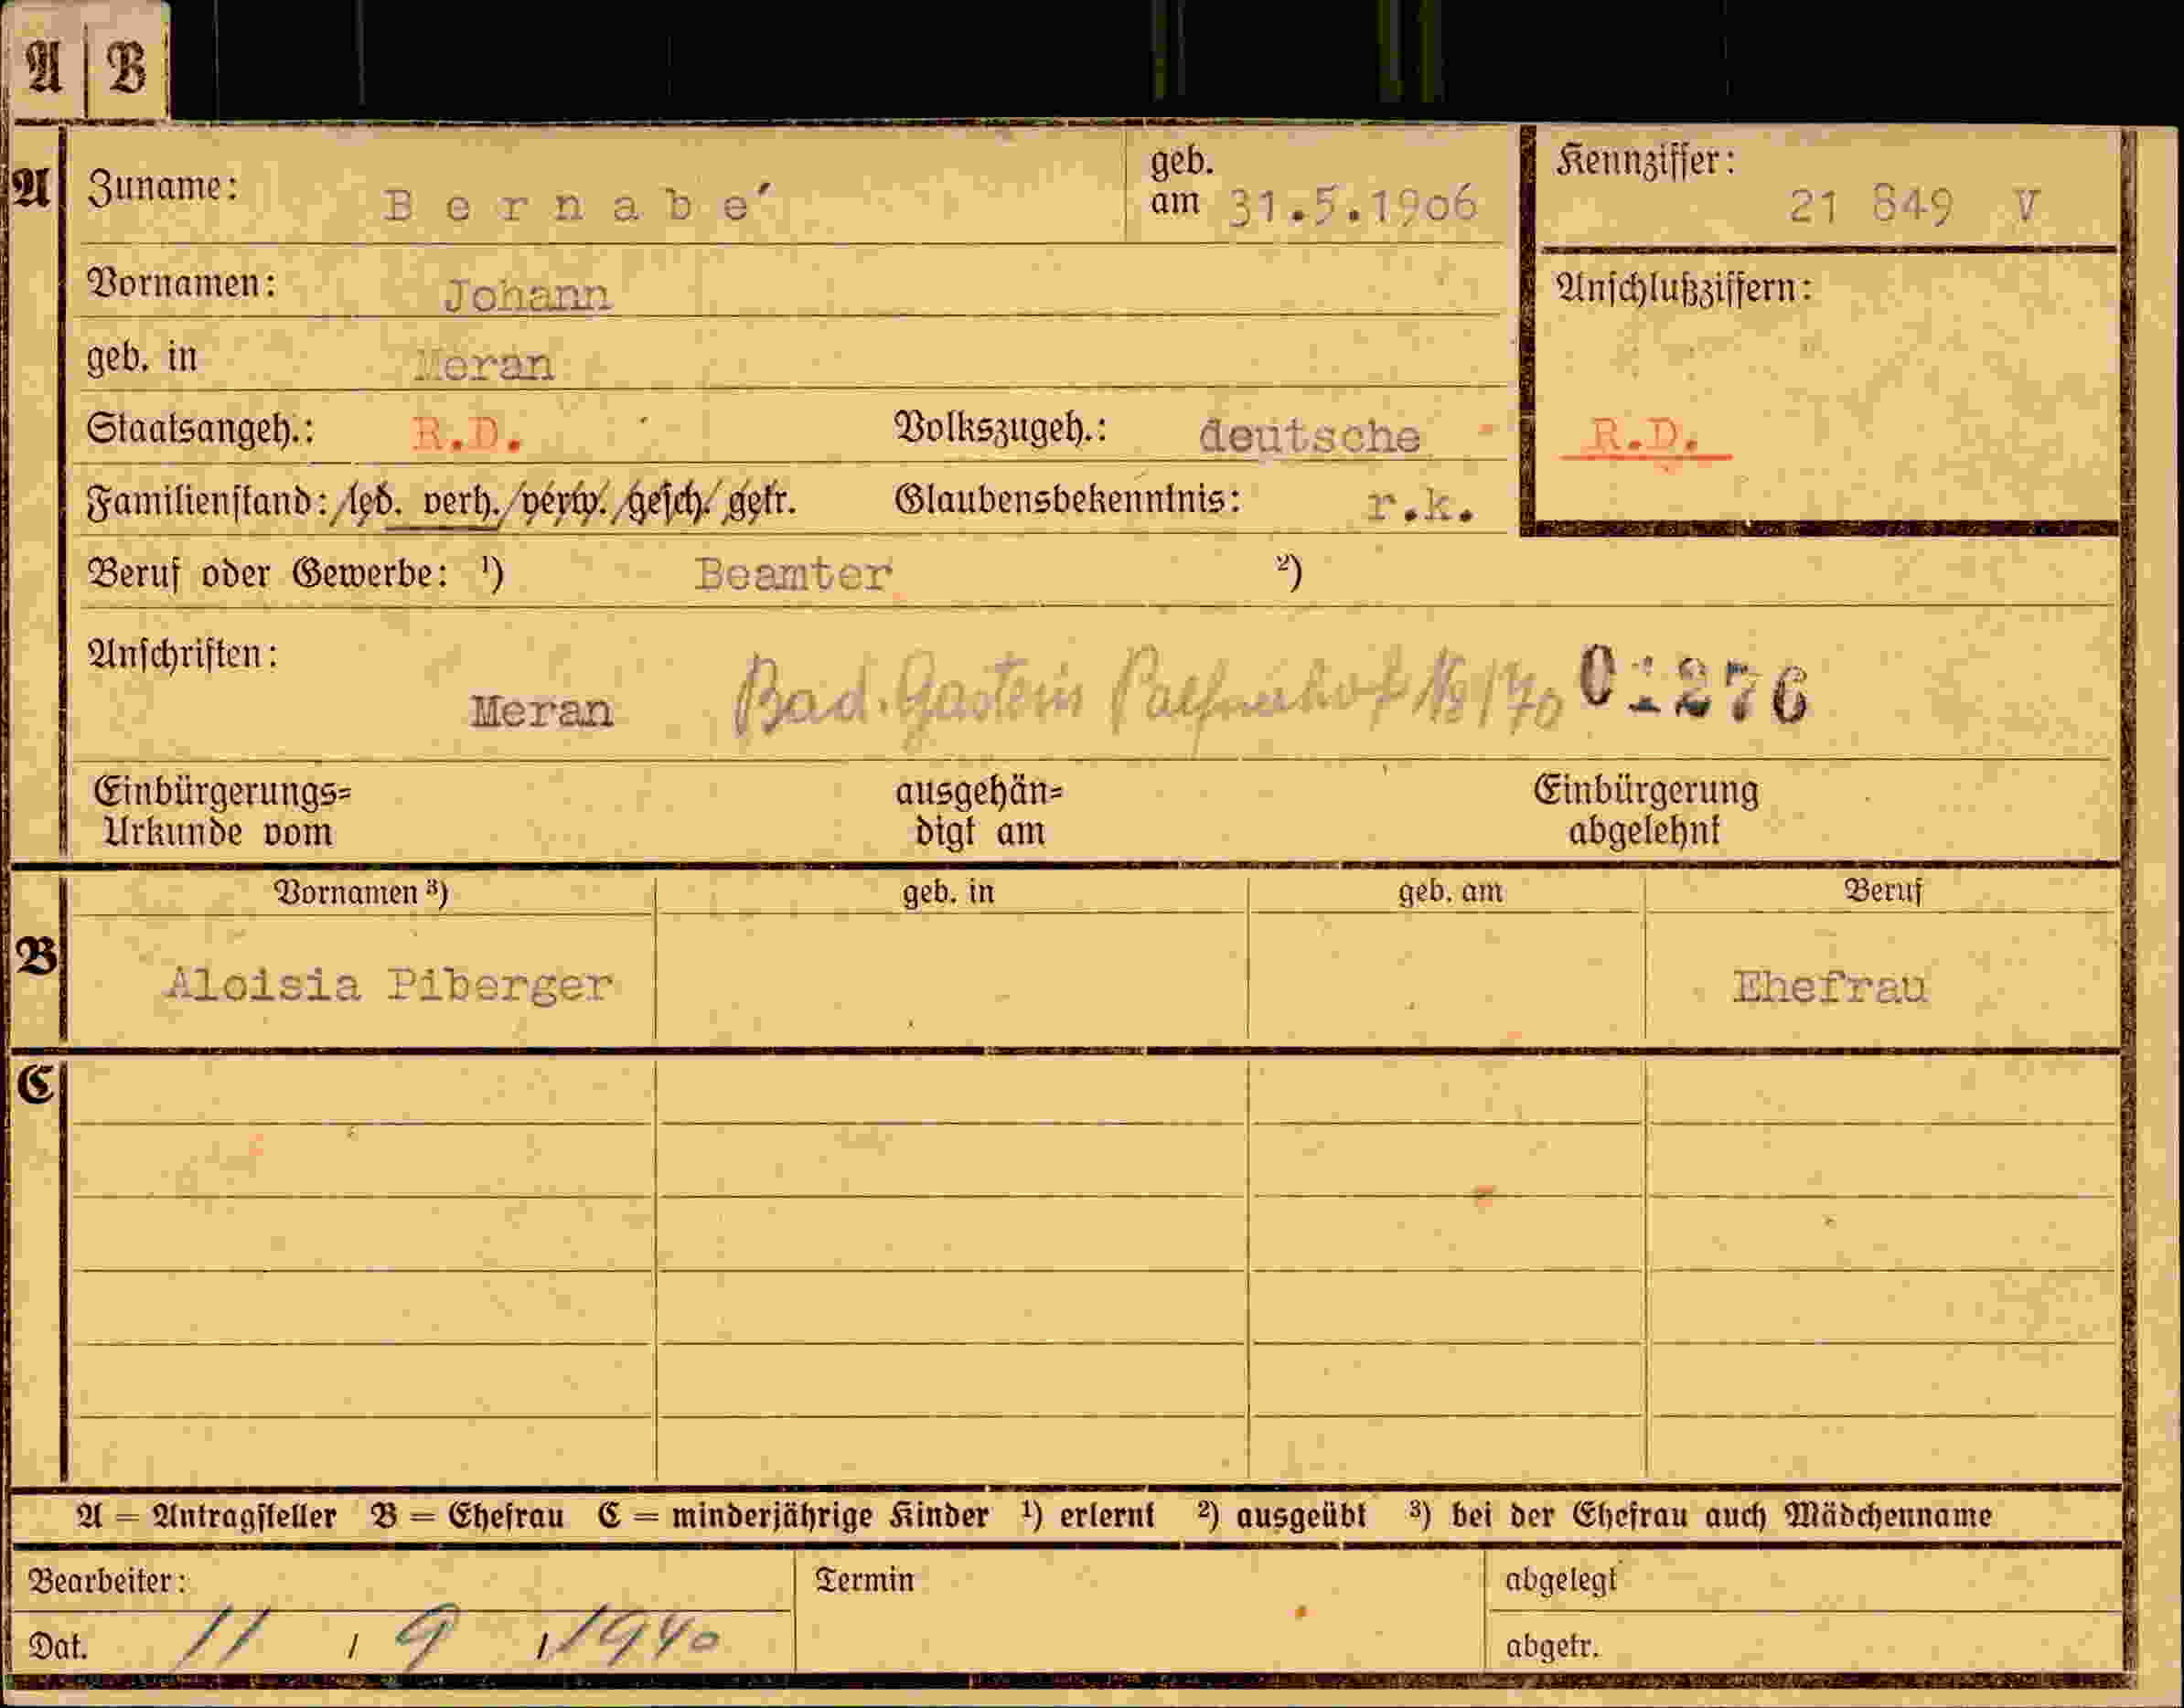 A B
A Zuname: Bernabe´ geb. am 31.5.1906 Kennziffer: 21 849 V
Vornamen: Johann Anschlußziffern:
geb. in Meran
Staatsangeh.: R.D. Volkszugeh.: deutsche R.D.
Familienstand: led. verh. verw. gesch. getr. Glaubensbekenntnis: r.k.
Beruf oder Gewerbe: ¹) Beamter ²)
Anschriften:
Meran Bad. Gastein № 170 01276
Einbürgerungs= ausgehän= Einbürgerung
Urkunde vom digt am abgelehnt
Vornamen ³) geb. in geb. am Beruf
B Aloisia Piberger Ehefrau
C
A = Antragsteller B = Ehefrau C = minderjährige Kinder ¹) erlernt ²) ausgeübt ³) bei der Ehefrau auch Mädchenname
Bearbeiter: Termin abgelegt
Dat. 11 / 9 / 1940 abgetr.